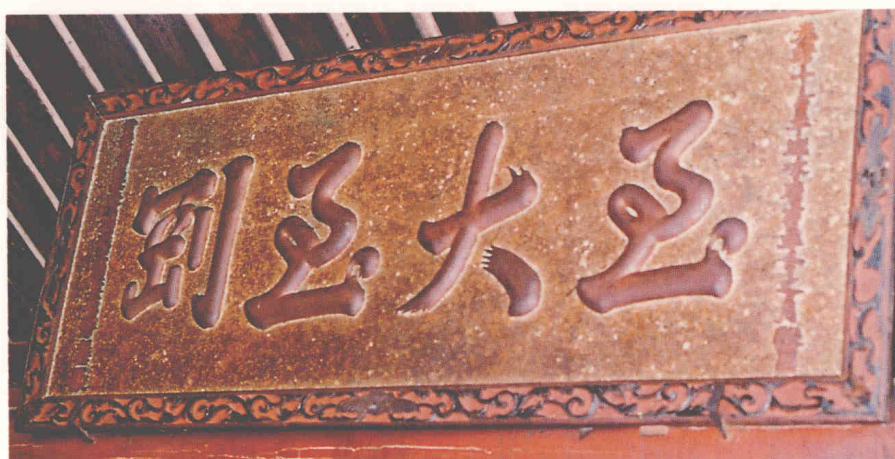 至大至剛